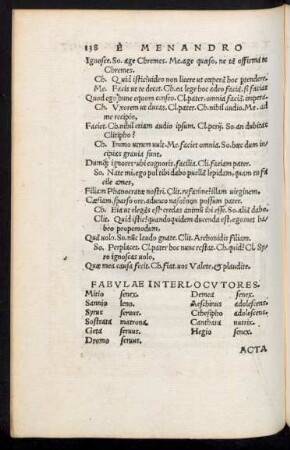 138 E MENANDRO
Ignosce. So. age Chremes. Me. age quæso, ne tã offirma te
Chremes.
Ch. Quid istic? uideo non licere ut cœperã hoc
Me. Facis ut te decet. Ch. ea lege hoc adeo faciã. si faciat
Quod ego hunc equum censeo. Cl. pater. omnia faciã. impera.
Ch. Vxorem ut ducas. Cl. pater. Ch. nihil audio. Me. ad
me recipio,
Faciet. Ch. nihil etiam audio ipsum. Cl. perij. So. an dubitas
Clitipho?
Ch. Immo utrum uult. Me. faciet omnia. So. hæc dum in-
cipias grauia sunt.
Dumq; ignores: ubi cognoris, facilia. Cli. faciam pater.
So. Nate mi, ego pol tibi dabo puellã lepidam, quam tu fa
cile ames,
Filiam Phanocratæ nostri. Clit. rufam ne illam uirginem,
Cæsiam, sparso ore, adunco naso? non possum pater.
Ch. Eia ut elegãs est: credas animũ ibi esse. So. aliã dabo.
Clit. Quid istic? quando quidem ducenda est, egomet habeo
propemodum,
Quã uolo. So. nũc laudo gnate. Clit. Archonidis filiam.
So. Perplacet. Cl. pater hoc nunc restat. Ch. quid? Cl. Syro
ignoscas uolo,
Quæ mea causa fecit. Ch. fiat. uos Valete, & plaudite.
FABVLAE INTERLOCVTORES.
Mitio senex. Demea senex.
Sannio leno. Aeschinus adolescens.
Syrus seruus. Cthesipho adolescens.
Sostrata matrona. Canthara nutrix.
Geta seruus. Hegio senex.
Dromo seruus.
ACTA